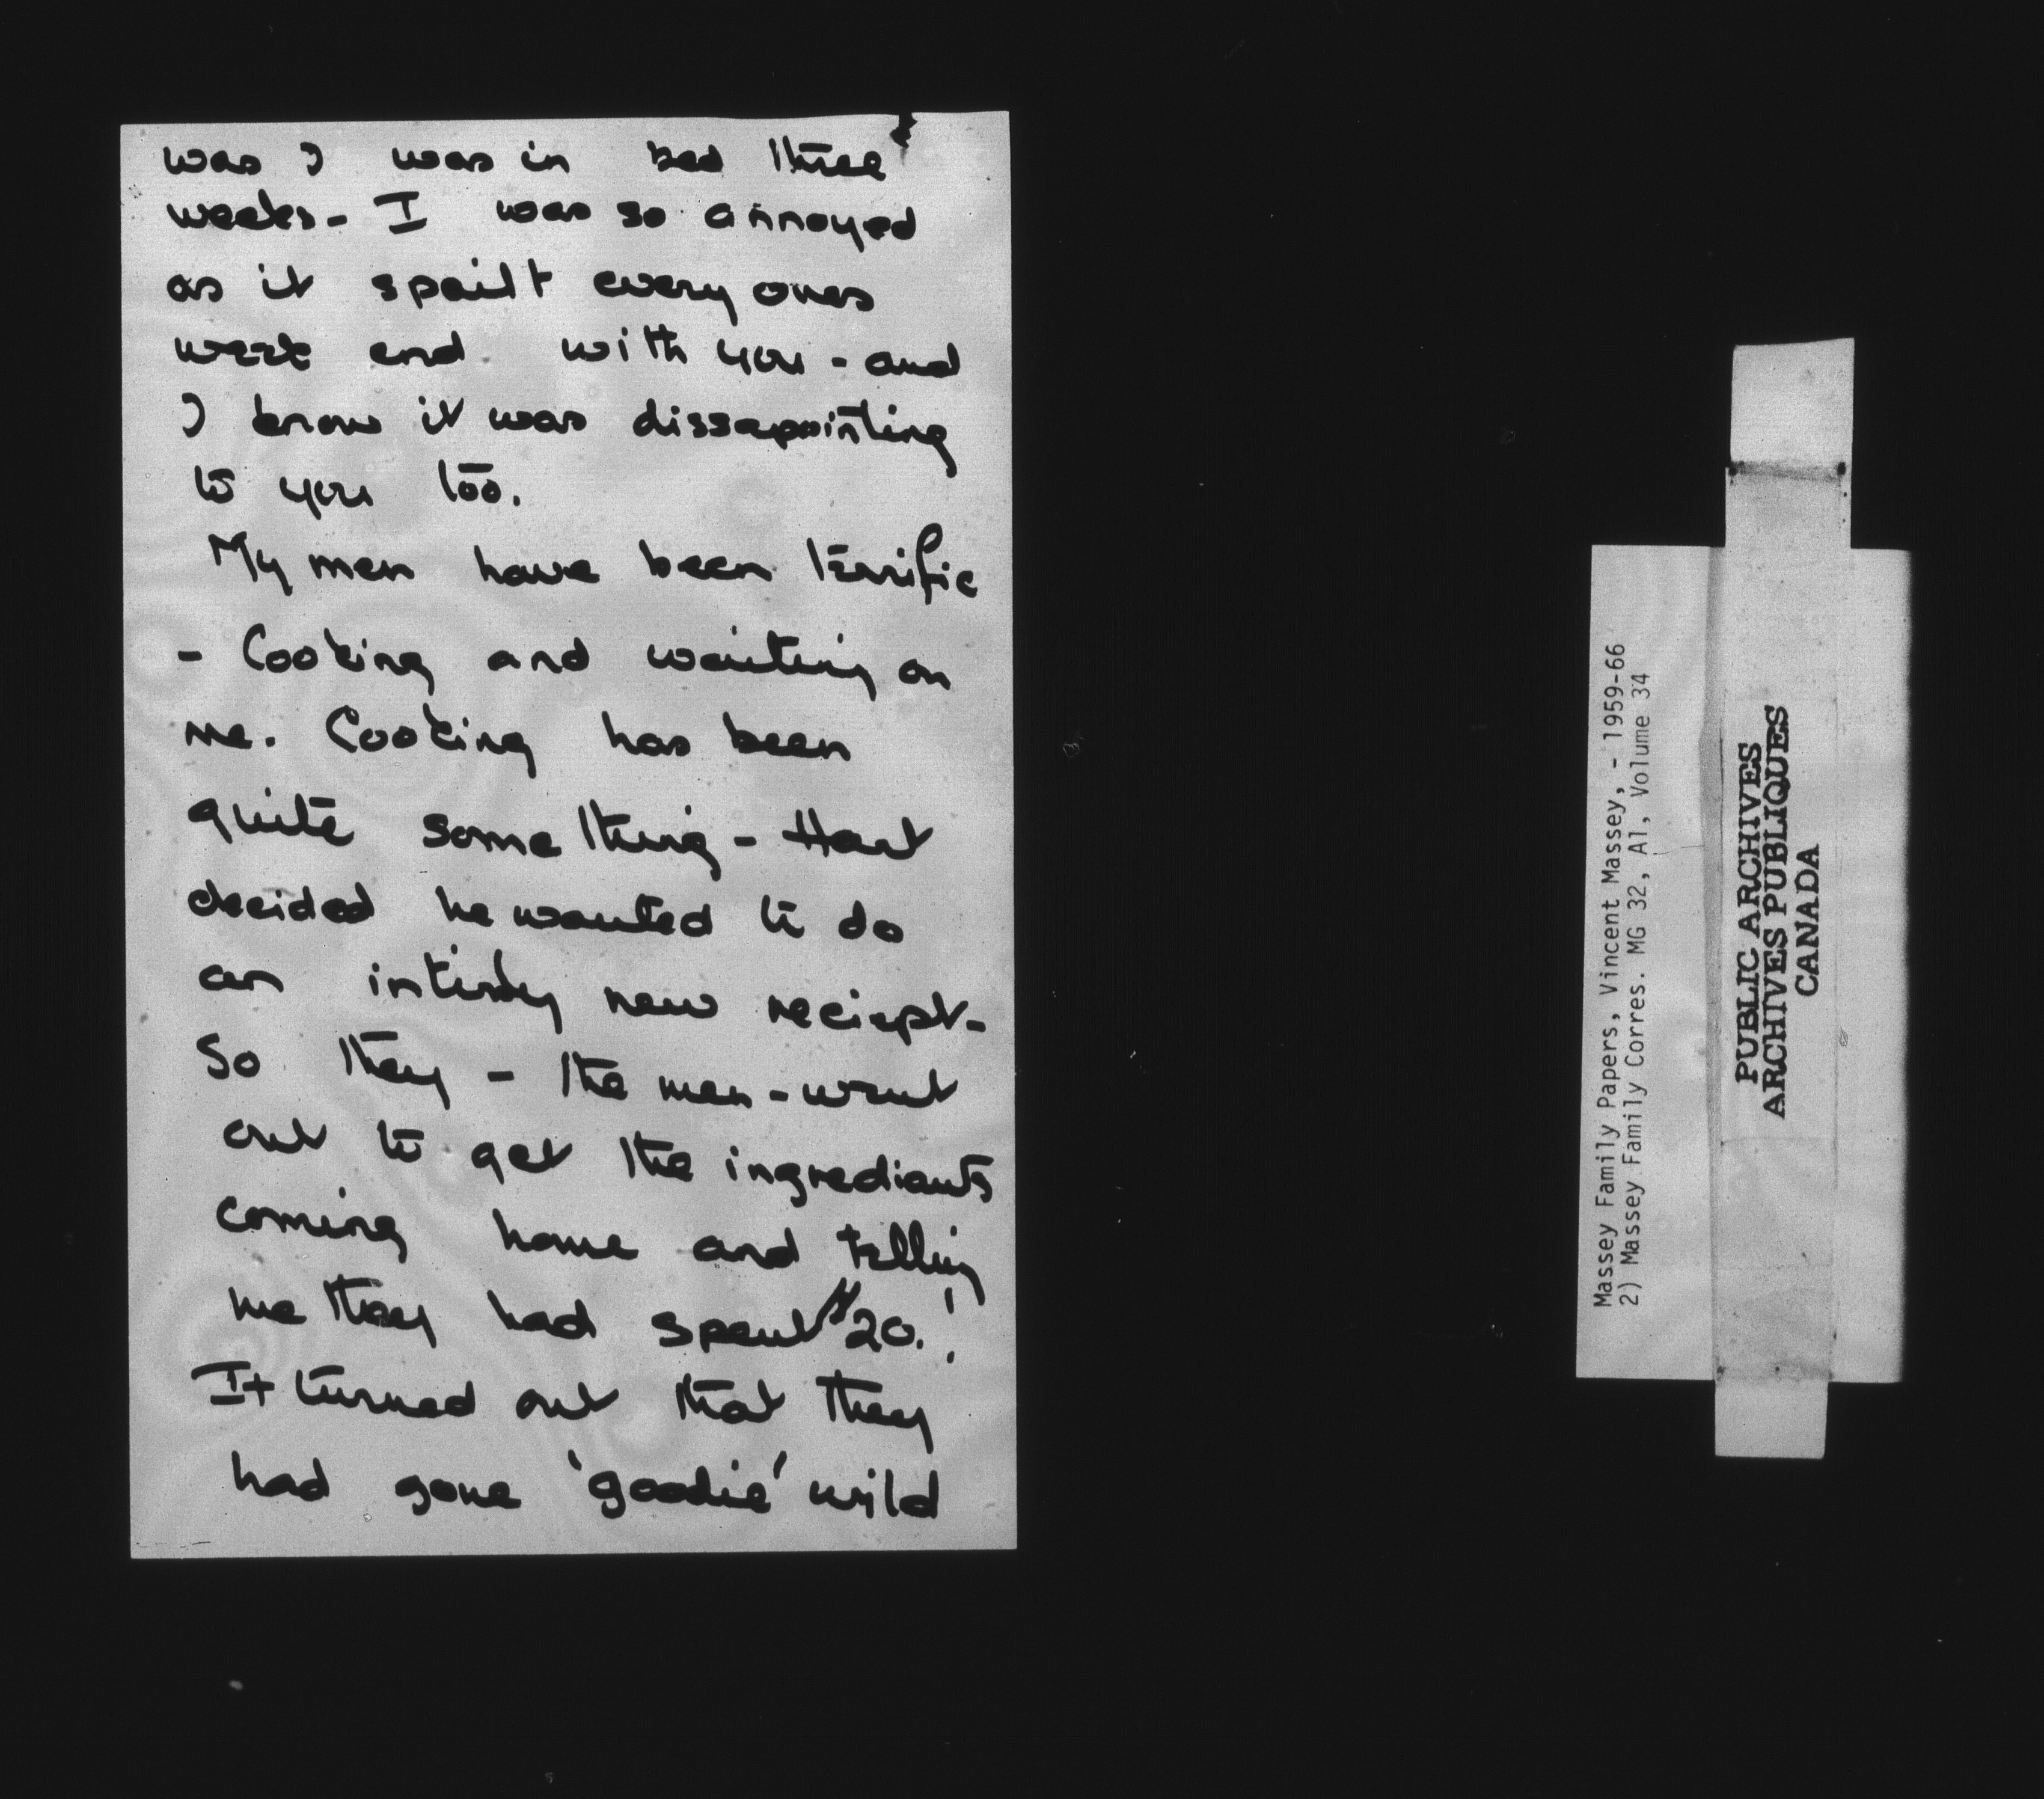 was I was in bed three
weeks - I was so annoyed
as it spoilt every ones
week end with you - and
I know it was dissapointing
to you too.
My men have been terrific
- Cooking and waiting on
me. Cooking has been
quite some thing - Hart
decided he wanted to do
an intirly new reciept -
So they - the men - went
out to get the ingrediants
coming home and telling
me they had spent $20.!
It turned out that they
had gone 'goodie' wild
Massey Family Papers, Vincent Massey, - 1959-66
2) Massey Family Corres. MG 32, A1, Volume 34
PUBLIC ARCHIVES
ARCHIVES PUBLIQUES
CANADA